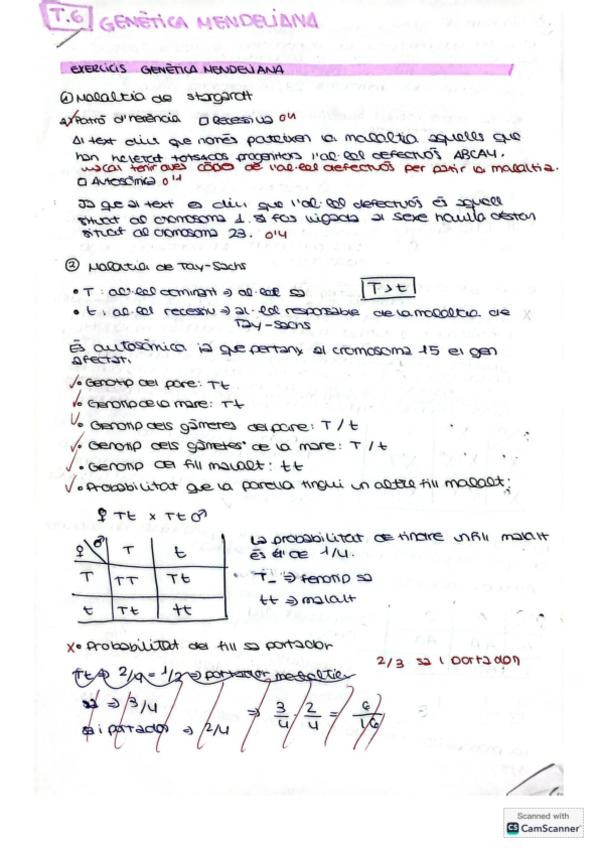 T.6 GENÈTICA MENDELIANA
EXERCICIS GENÈTICA MENDELIANA
① Malaltia de Stargardt
a) Patró d'herència ○ Recessiva 0'4
Al text diu que només pateixen la malaltia aquelles que
han heretat tots dos progenitors l'al·lel defectuós ABCA4.
cal tenir dues còpies de l'al·lel defectuós per patir la malaltia.
○ Autosòmica 0'4
Ja que al text es diu que l'al·lel defectuós és aquell
situat al cromosoma 1. Si fos lligada al sexe hauria d'estar
situat al cromosoma 23. 0'4
② Malaltia de Tay-Sachs
• T : al·lel dominant ⇒ al·lel sa
T > t
• t : al·lel recessiu ⇒ al·lel responsable de la malaltia de
Tay-Sachs
És autosòmica ja que pertany al cromosoma 15 el gen
afectat.
✓• Genotip del pare: Tt
✓• Genotip de la mare: Tt
✓• Genotip dels gàmetes del pare: T / t
✓• Genotip dels gàmetes de la mare: T / t
✓• Genotip del fill malalt: tt
✓• Probabilitat que la parella tingui un altre fill malalt:
♀ Tt x Tt ♂
♀ ♂ T t
T TT Tt
t Tt tt
La probabilitat de tindre un fill malalt
és d' 1/4.
T_ ⇒ fenotip sa
tt ⇒ malalt
x• Probabilitat del fill sa portador
2/3 sa i portador
Tt ⇒ 2/4 = 1/2 ⇒ portador malaltia
sa ⇒ 3/4
sa i portador ⇒ 2/4
⇒ 3/4 · 2/4 = 6/16
Scanned with
CS CamScanner